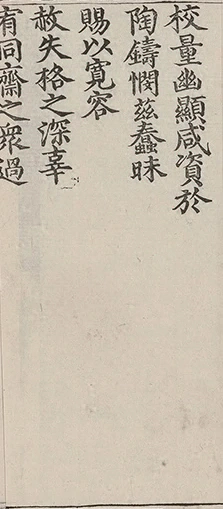 校量幽顯咸資於
陶鑄憫茲蠢昧
賜以寬容
赦失格之深辜
宥同齋之衆過